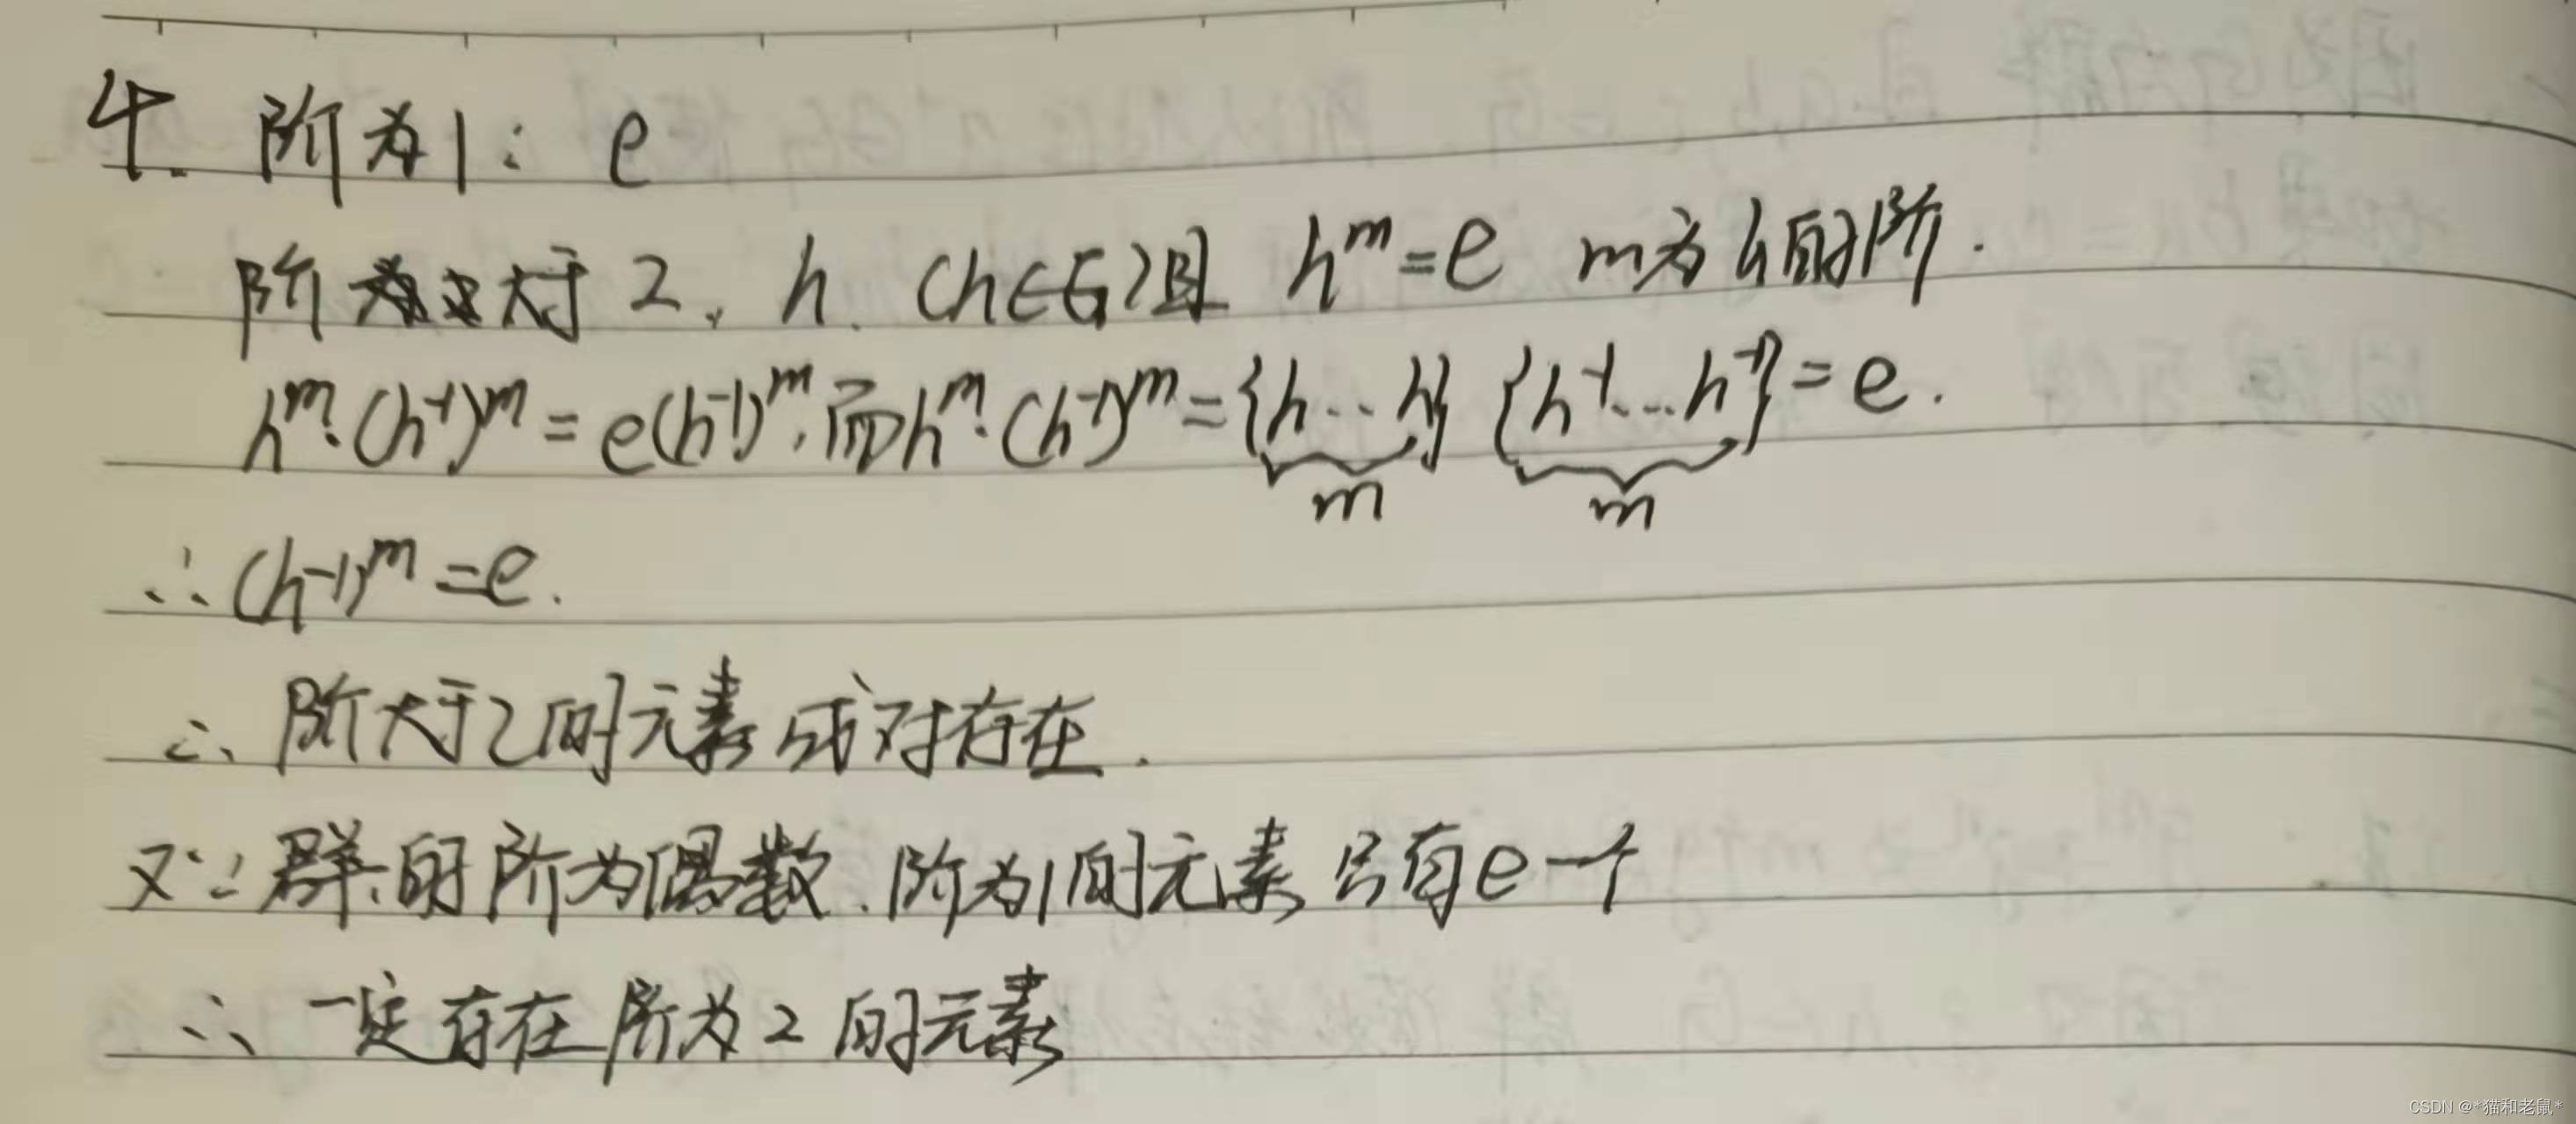 4. 阶为1: e
阶大于2, h. (h∈G)且 h^m=e m为h的阶.
h^m·(h^-1)^m=e(h^-1)^m,而h^m·(h^-1)^m={h...h}{h^-1...h^-1}=e.
m m
∴(h^-1)^m=e.
∴阶大于2的元素成对存在.
又∵群的阶为偶数.阶为1的元素只有e一个
∴一定存在阶为2的元素
CSDN @*猫和老鼠*